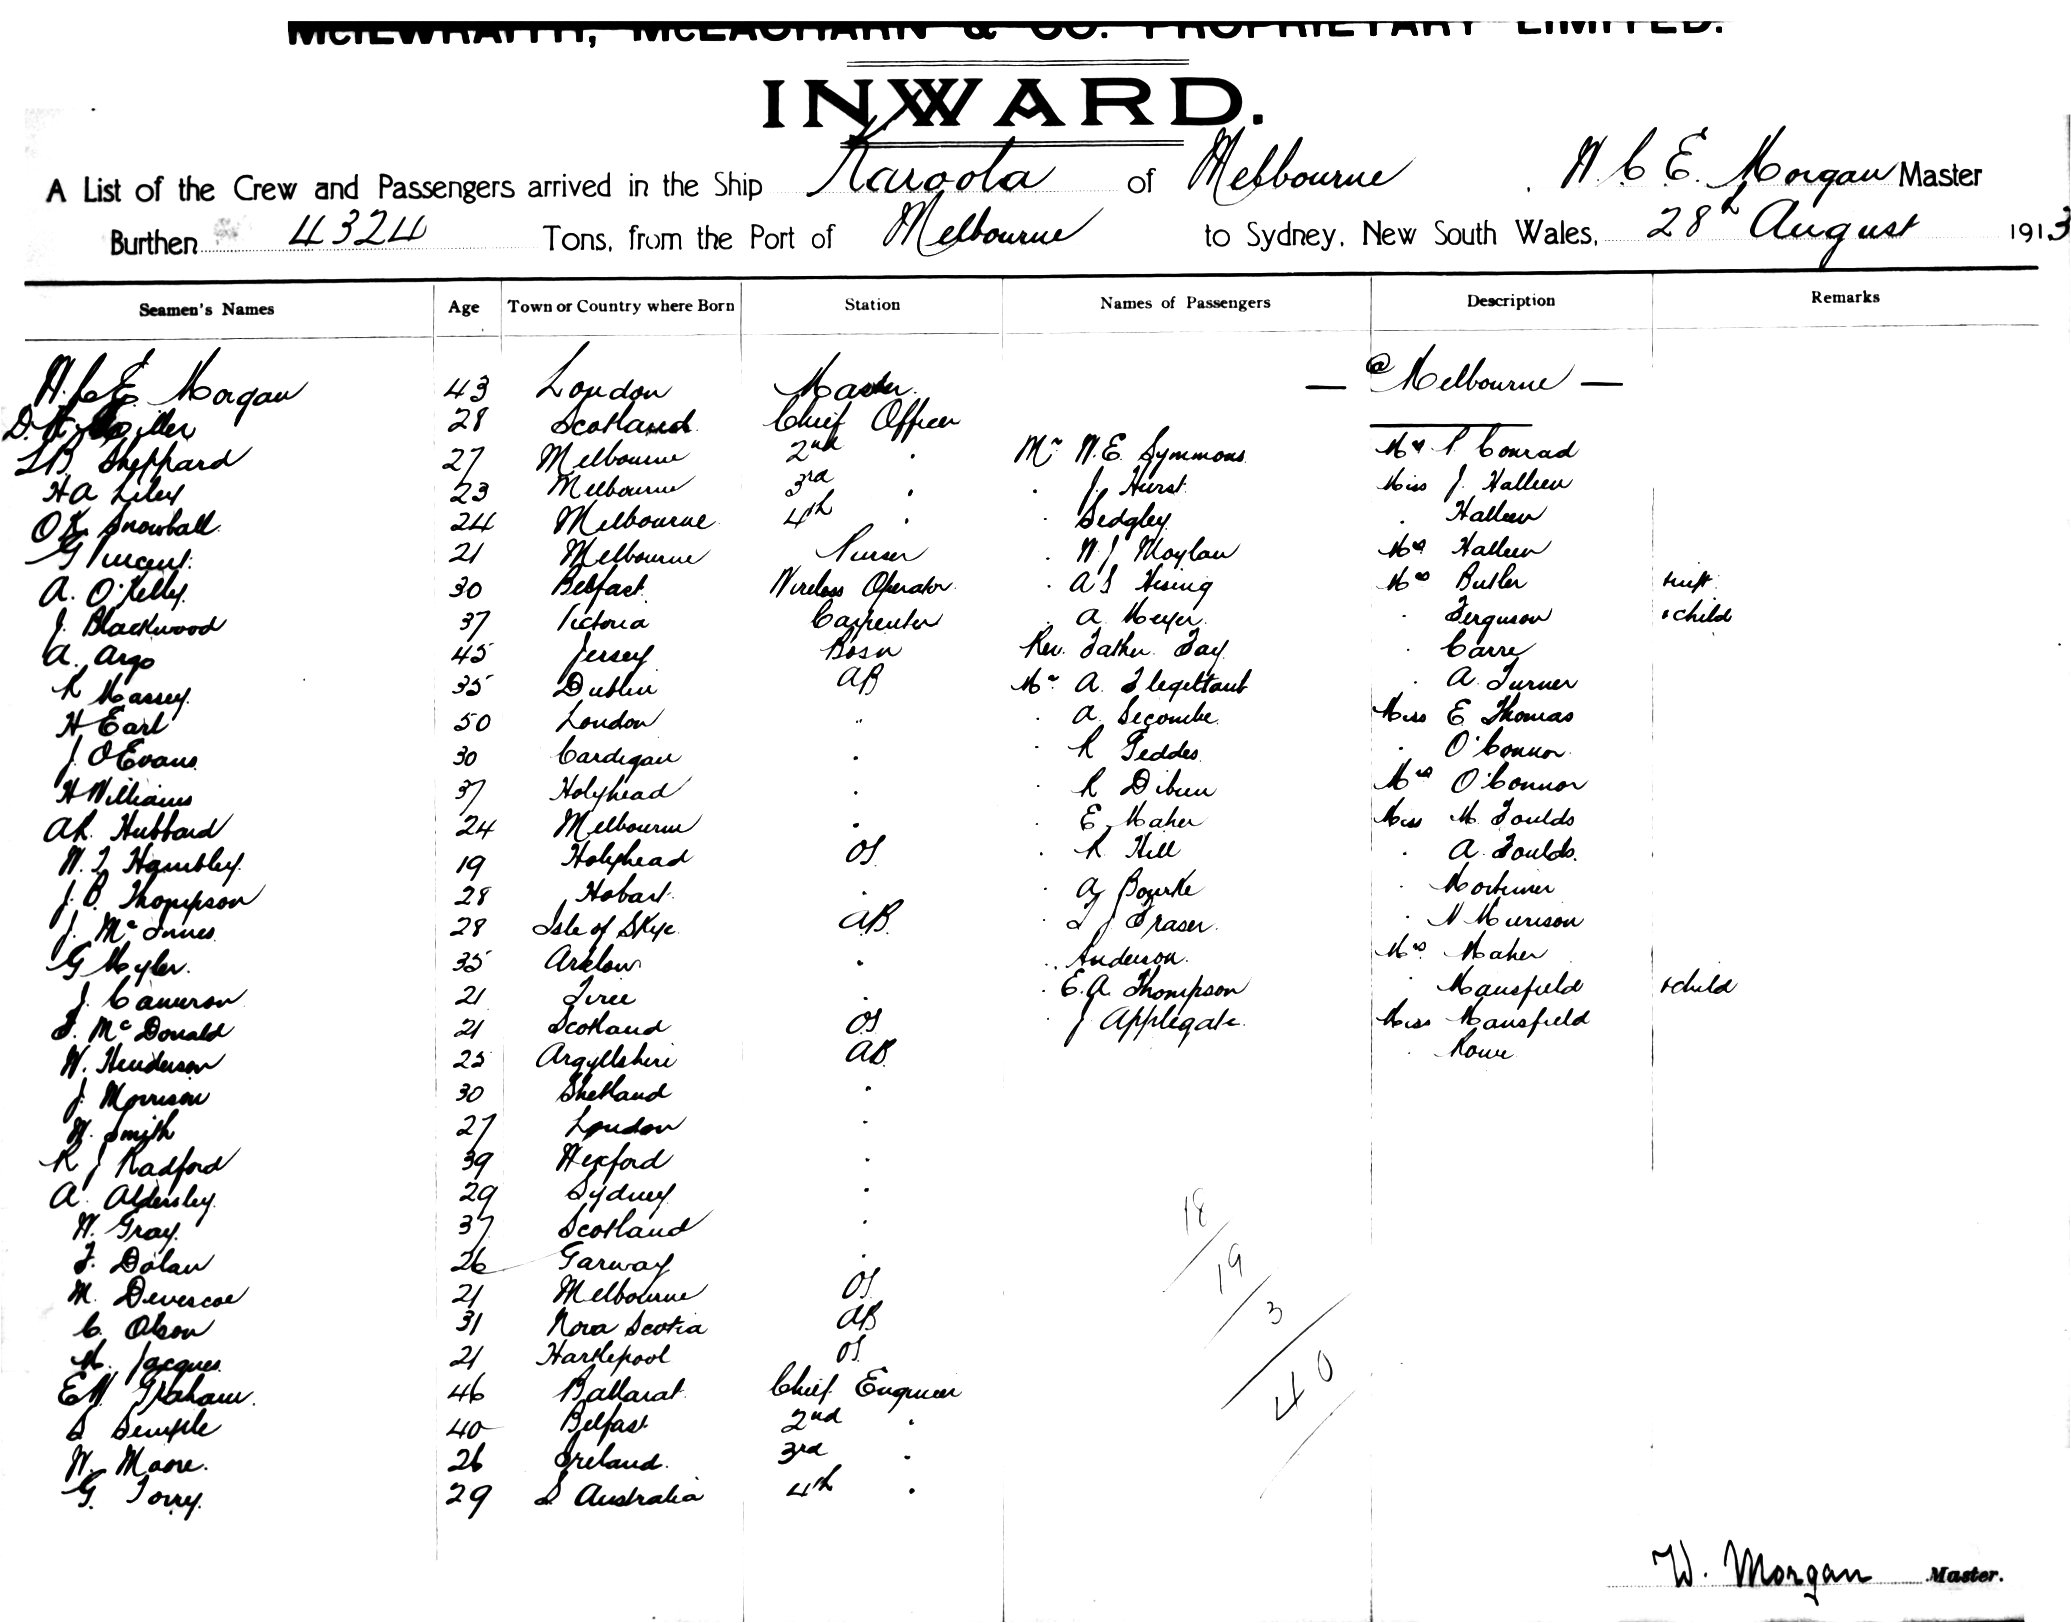 McILWRAITH, McEACHARN & CO. PROPRIETARY LIMITED.
INWARD.
A List of the Crew and Passengers arrived in the Ship Karoola of Melbourne W. C. E. Morgan Master
Burthen 4324 Tons, from the Port of Melbourne to Sydney, New South Wales, 28th August 1913
Seamen's Names Age Town or Country where Born Station Names of Passengers Description Remarks
W. C. E. Morgan 43 London Master — @ Melbourne —
D. Miller 28 Scotland Chief Officer
L B. Sheppard 27 Melbourne 2nd . Mr W. E. Symmons Mrs Conrad
H A Liley 23 Melbourne 3rd . . J. Hurst Miss J. Halleen
O K Snowball 24 Melbourne 4th . . Sedgley . Halleen
G Vincent 21 Melbourne Purser . W J Moylan Mrs Halleen
A. O'Kelly. 30 Belfast Wireless Operator . A S Hising Mrs Butler
J. Blackwood 37 Victoria Carpenter . A Meyer . Ferguson & child
A. Argo 45 Jersey Bosn Rev. Father Fay . Carre
R Massey. 35 Dublin AB Mr A. Flegeltaub . A. Turner
H Earl 50 London " . A. Secombe Miss E Thomas
J. O Evans 30 Cardigan . . R Geddes . O'Connor
H Williams 37 Holyhead . . R Dibun Mrs O'Connor
A R. Hubbard 24 Melbourne . . E. Maher Miss M. Foulds
W. T. Hambley. 19 Holyhead OS . R Hill . A. Foulds.
J. B. Thompson 28 Hobart . . A Bourke . Mortimer
J. Mc Innes 28 Isle of Skye AB . T J Fraser . N Murison
G Myler. 35 Arklow . . Anderson. Mrs Maher
J. Cameron 21 Tiree . . E. A. Thompson . Mansfield & child
F. Mc Donald 21 Scotland OS . J Applegate Miss Mansfield
W. Henderson 25 Argyllshire AB . Rowe
J. Morrison 30 Shetland .
W. Smith 27 London .
R J Radford 39 Wexford .
A. Aldersley. 29 Sydney .
W. Gray. 37 Scotland .
F. Dolan 26 Garway .
M. Deverscoe 21 Melbourne OS
C. Olson 31 Nova Scotia AB
M. Jacques 21 Hartlepool OS
E W Graham. 46 Ballarat Chief Engineer
S Semple 40 Belfast 2nd .
W. Moore. 26 Ireland. 3rd .
G. Torry. 29 S Australia 4th .
18
19
3
40
W. Morgan Master.